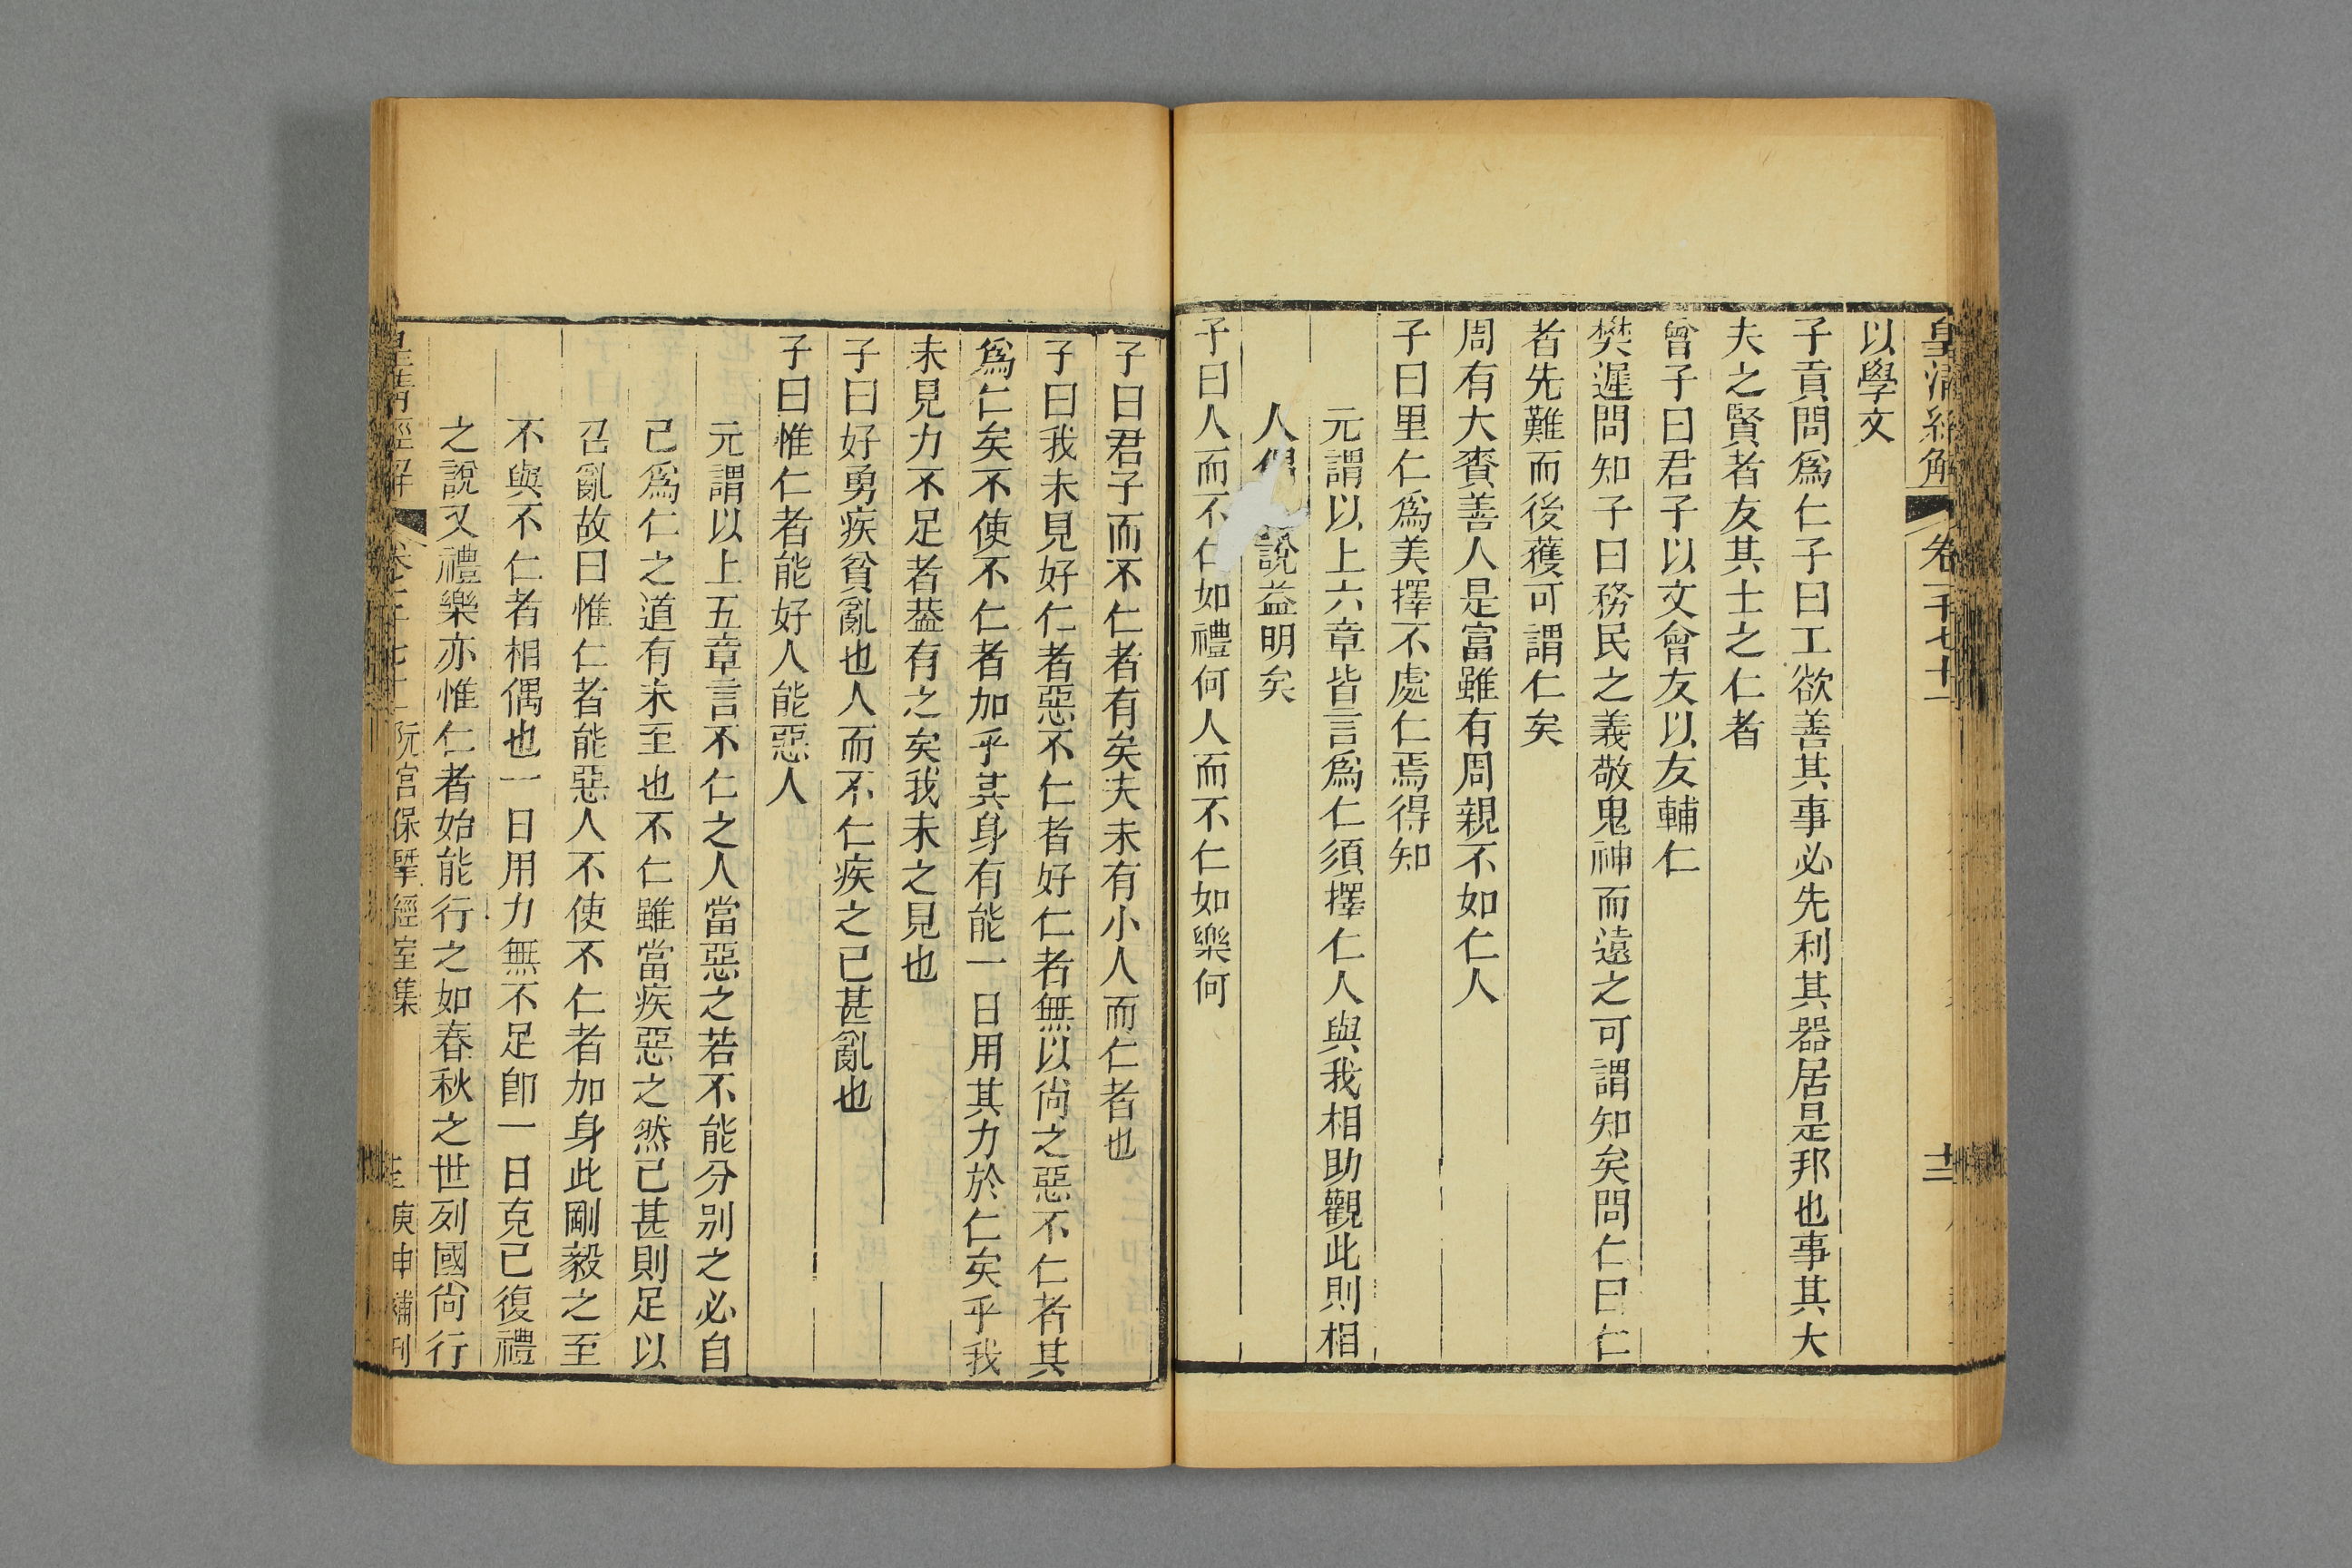 皇清經解 卷一千七十一 十三
以學文
子貢問爲仁子曰工欲善其事必先利其器居是邦也事其大
夫之賢者友其士之仁者
曾子曰君子以文會友以友輔仁
樊遲問知子曰務民之義敬鬼神而遠之可謂知矣問仁曰仁
者先難而後獲可謂仁矣
周有大賚善人是富雖有周親不如仁人
子曰里仁爲美擇不處仁焉得知
元謂以上六章皆言爲仁須擇仁人與我相助觀此則相
人偶 說益明矣
子曰人而不仁如禮何人而不仁如樂何
子曰君子而不仁者有矣夫未有小人而仁者也
子曰我未見好仁者惡不仁者好仁者無以尙之惡不仁者其
爲仁矣不使不仁者加乎其身有能一日用其力於仁矣乎我
未見力不足者葢有之矣我未之見也
子曰好勇疾貧亂也人而不仁疾之已甚亂也
子曰惟仁者能好人能惡人
元謂以上五章言不仁之人當惡之若不能分別之必自
己爲仁之道有未至也不仁雖當疾惡之然已甚則足以
召亂故曰惟仁者能惡人不使不仁者加身此剛毅之至
不與不仁者相偶也一日用力無不足卽一日克己復禮
之說又禮樂亦惟仁者始能行之如春秋之世列國尙行
皇清經解 卷一千七十一 阮宮保揅經室集 庚申補刊